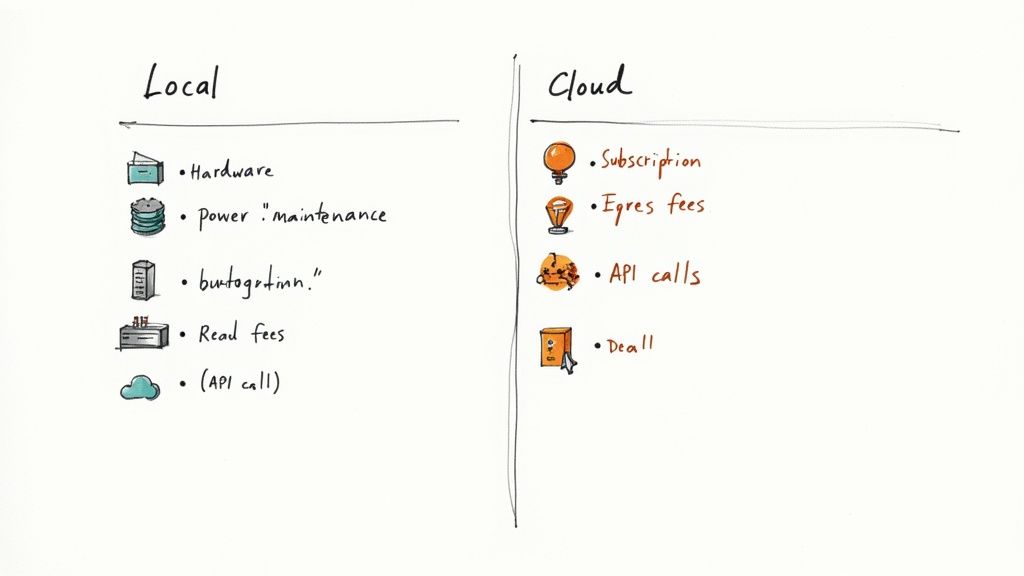 Local
• Hardware
• power "maintenance
• Read fees
• (API call)
Cloud
• Subscription
• Egres fees
• API calls
• Deall